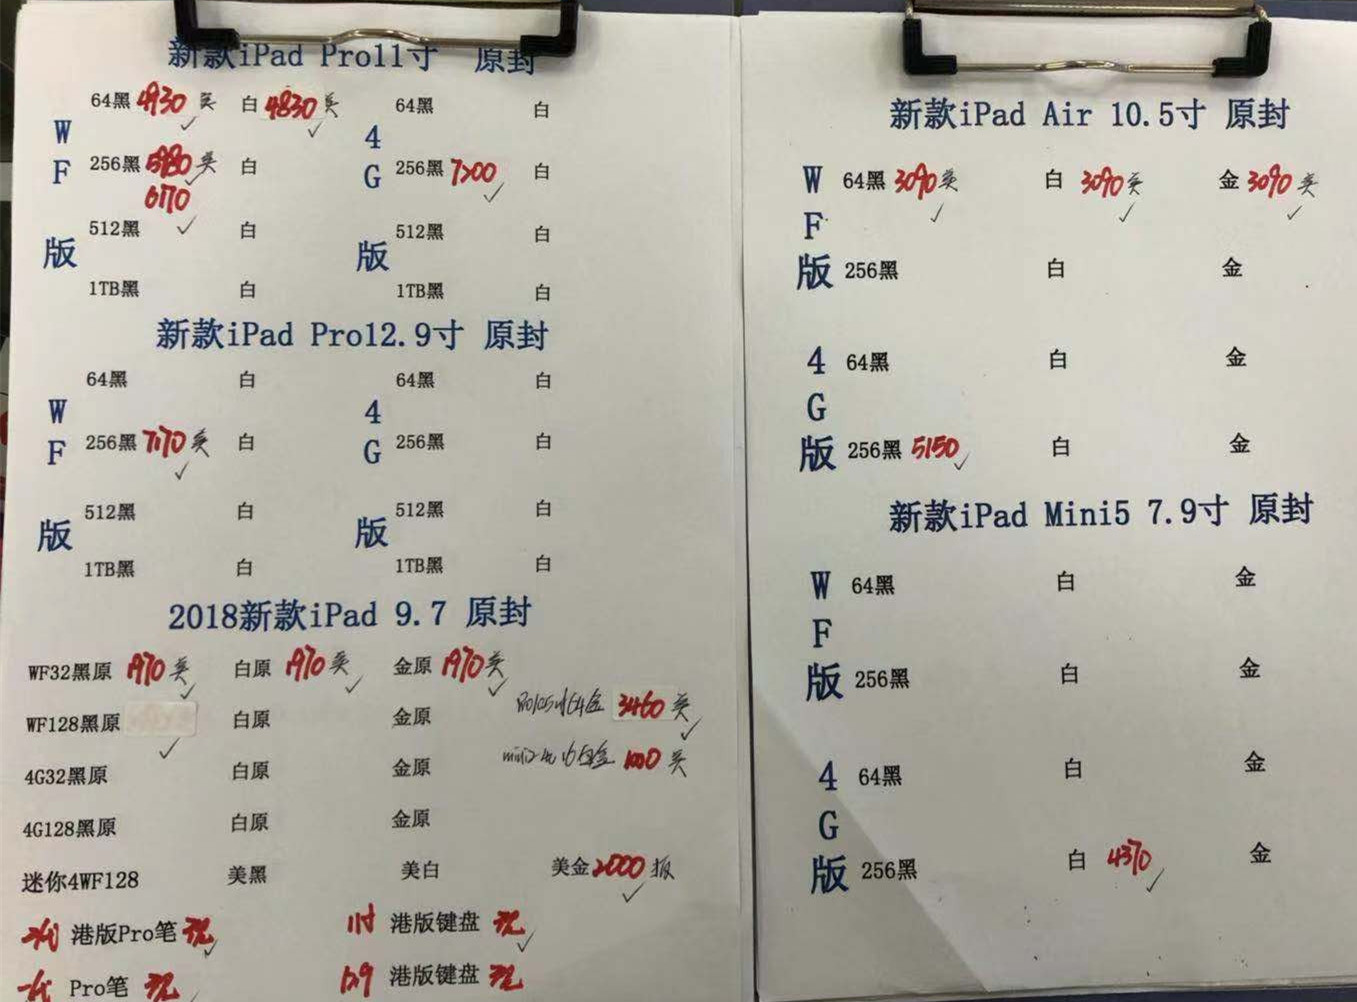 新款iPad Pro11寸 原封
64黑 4930 美 白 4830 美 64黑 白
W 4
256黑 5980 美 白 256黑 7200 白
F G
6170
512黑 白 512黑 白
版 版
1TB黑 白 1TB黑 白
新款iPad Pro12.9寸 原封
64黑 白 64黑 白
W 4
256黑 7170 美 白 256黑 白
F G
512黑 白 512黑 白
版 版
1TB黑 白 1TB黑 白
2018新款iPad 9.7 原封
WF32黑原 1970 美 白原 1970 美 金原 1970 美
WF128黑原 白原 金原 64金 3460 美
4G32黑原 白原 金原 mini2 16 1000 美
4G128黑原 白原 金原
迷你4WF128 美黑 美白 美金 2000
二代 港版Pro笔 现 11寸 港版键盘 现
一代 Pro笔 现 12.9 港版键盘 现
新款iPad Air 10.5寸 原封
W 64黑 3090 美 白 3090 美 金 3090 美
F
版 256黑 白 金
4 64黑 白 金
G
版 256黑 5150 白 金
新款iPad Mini5 7.9寸 原封
W 64黑 白 金
F
版 256黑 白 金
4 64黑 白 金
G
版 256黑 白 4370 金